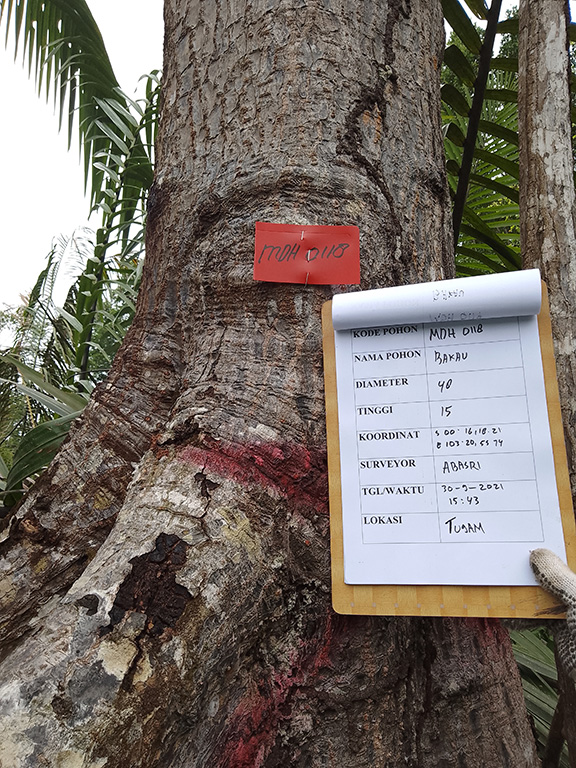 MDH 0118
KODE POHON MDH 0118
NAMA POHON BAKAU
DIAMETER 40
TINGGI 15
KOORDINAT S 00: 16, 18. 21
E 103: 20, 55 74
SURVEYOR ABASRI
TGL/WAKTU 30-9-2021
15:43
LOKASI TUGAM